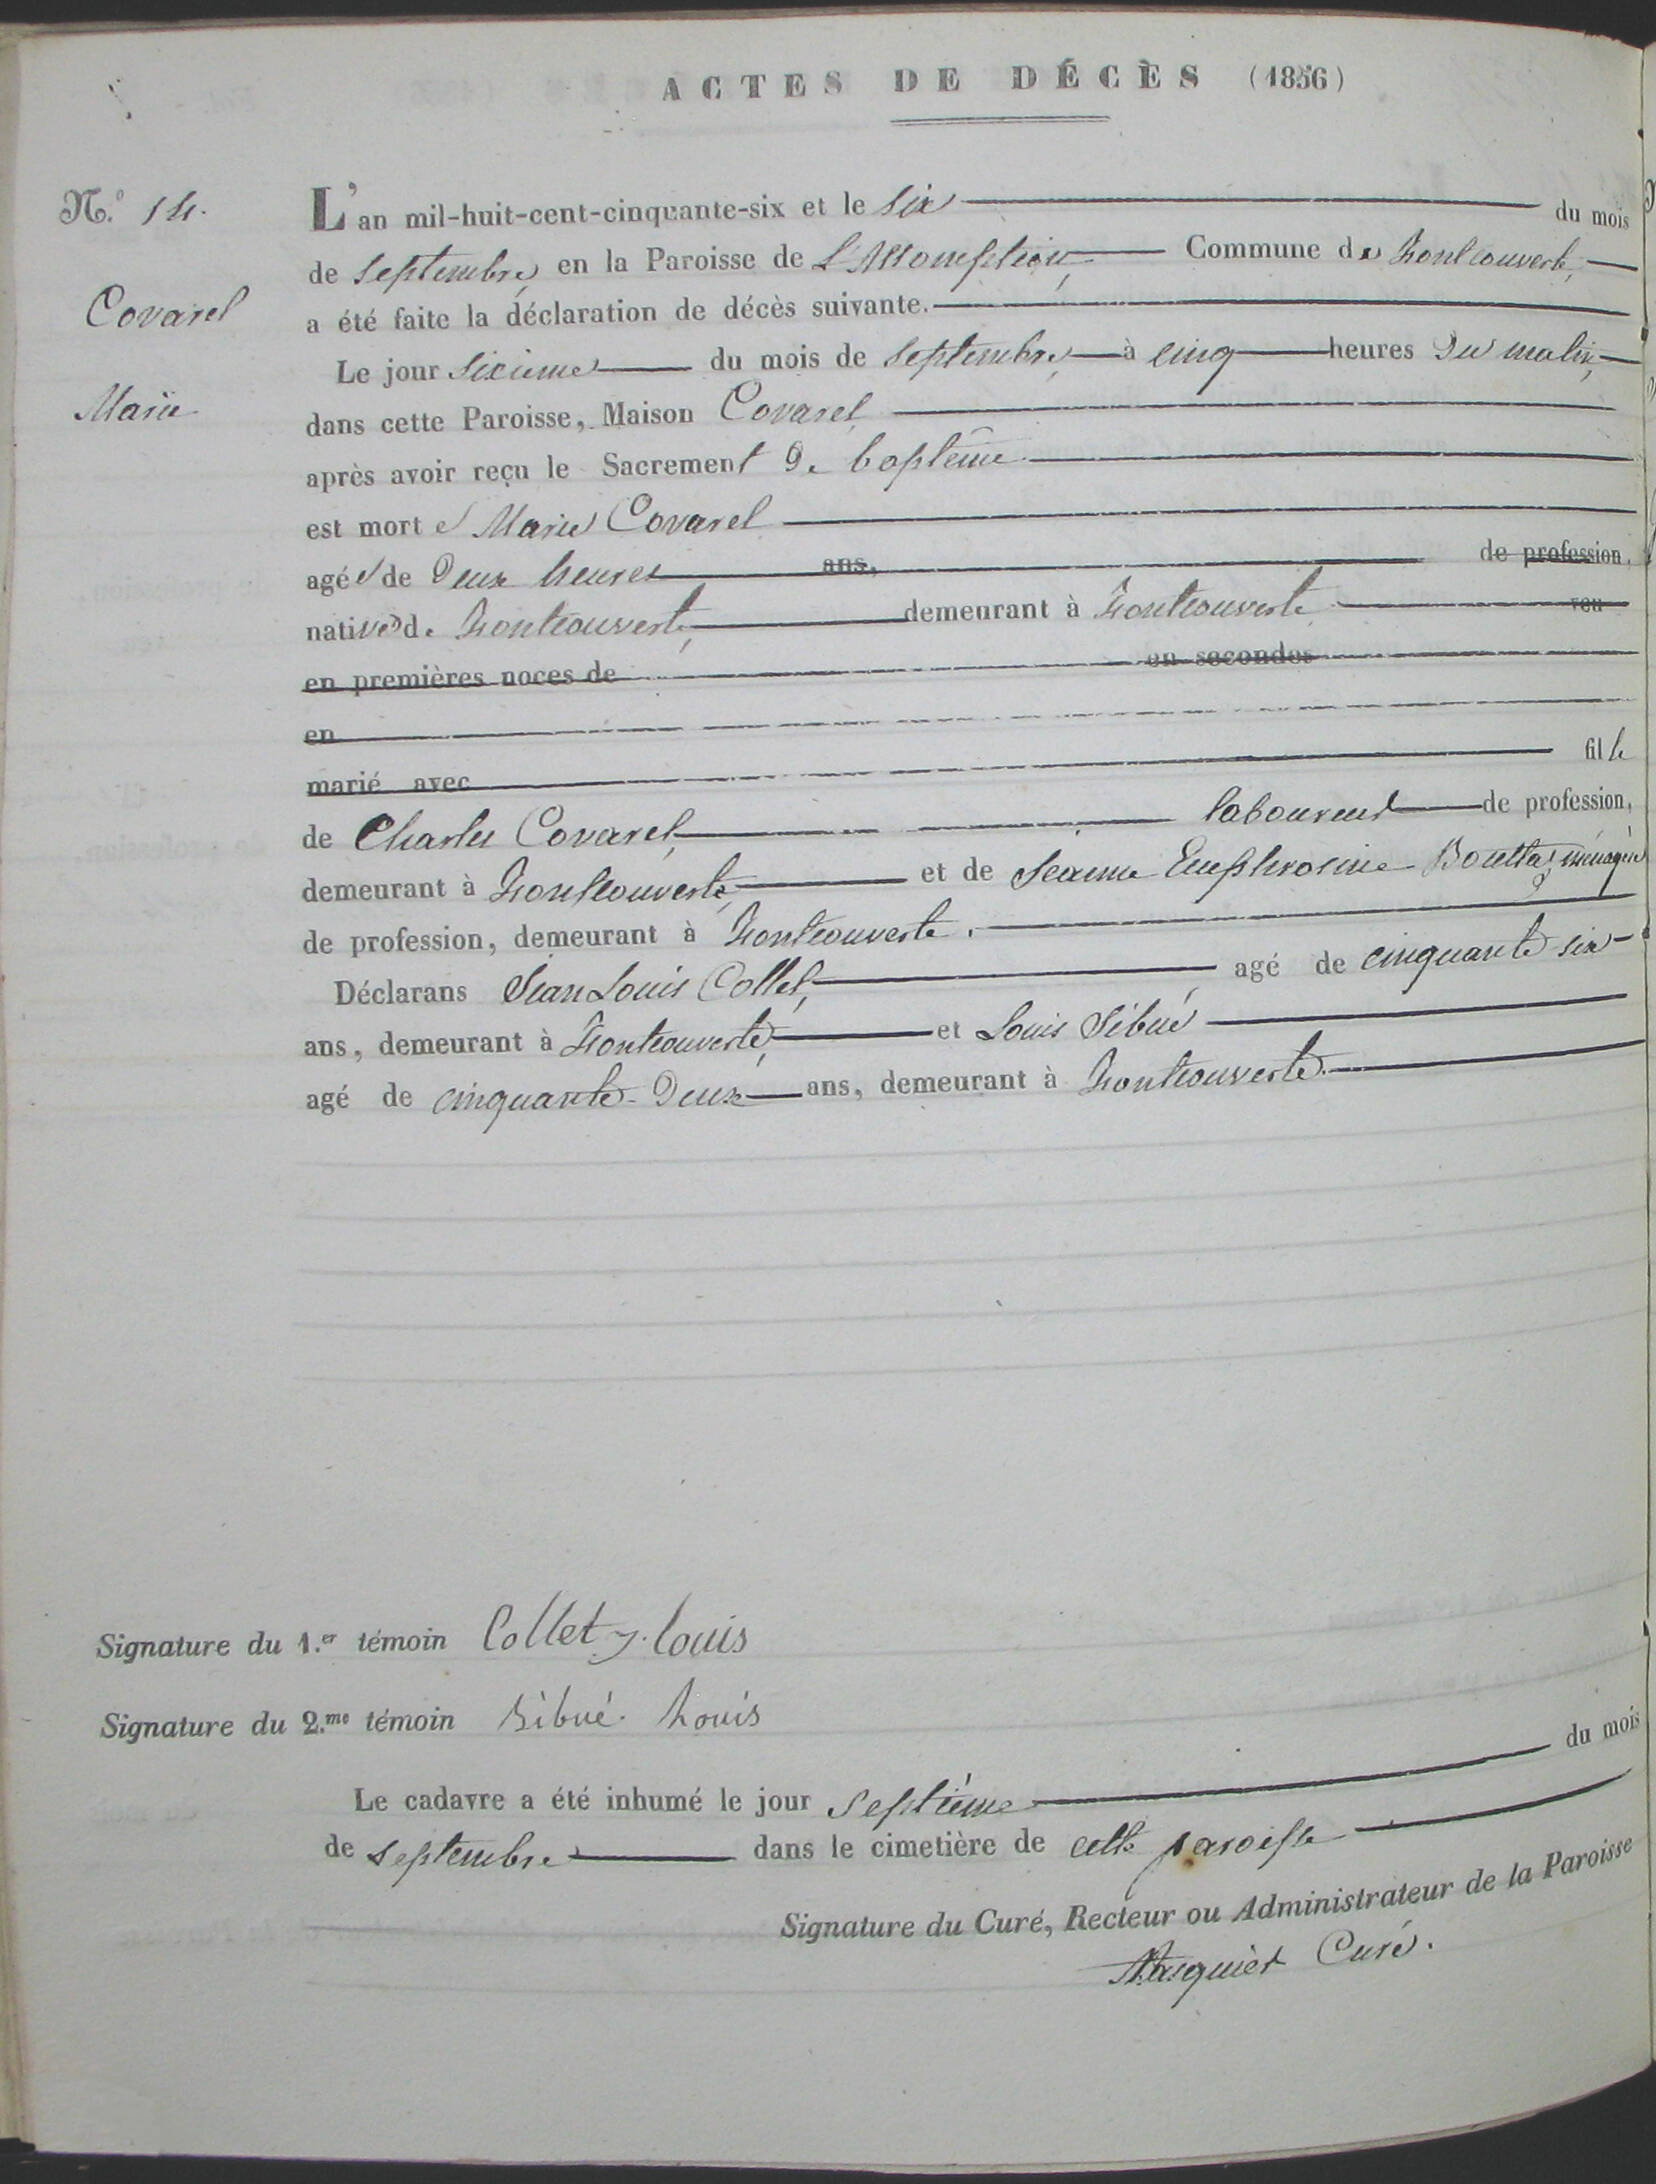 ACTES DE DÉCÈS (1856)
N.º 14.
L'an mil-huit-cent-cinquante-six et le six du mois
de septembre, en la Paroisse de L'Assomption, Commune de Fontcouverte,
Covarel
a été faite la déclaration de décès suivante.
Le jour sixième du mois de septembre, à cinq heures du matin,
Marie
dans cette Paroisse, Maison Covarel
après avoir reçu le Sacrement de baptême.
est morte Marie Covarel
agée de deux heures ans, de profession,
native de Fontcouverte, demeurant à Fontcouverte. veu
en premières noces de en secondes
en
marié avec fille
de Charles Covarel, laboureur de profession,
demeurant à Fontcouverte, et de Jeanne Euphrosine ménagère
de profession, demeurant à Fontcouverte.
Déclarans Jean Louis Collet, agé de cinquante-six
ans, demeurant à Fontcouverte, et Louis Sibué
agé de cinquante-deux ans, demeurant à Fontcouverte.
Signature du 1.er témoin Collet J. louis
Signature du 2.me témoin Sibué. Louis
Le cadavre a été inhumé le jour septième du mois
de septembre dans le cimetière de cette paroisse
Signature du Curé, Recteur ou Administrateur de la Paroisse
Curé.